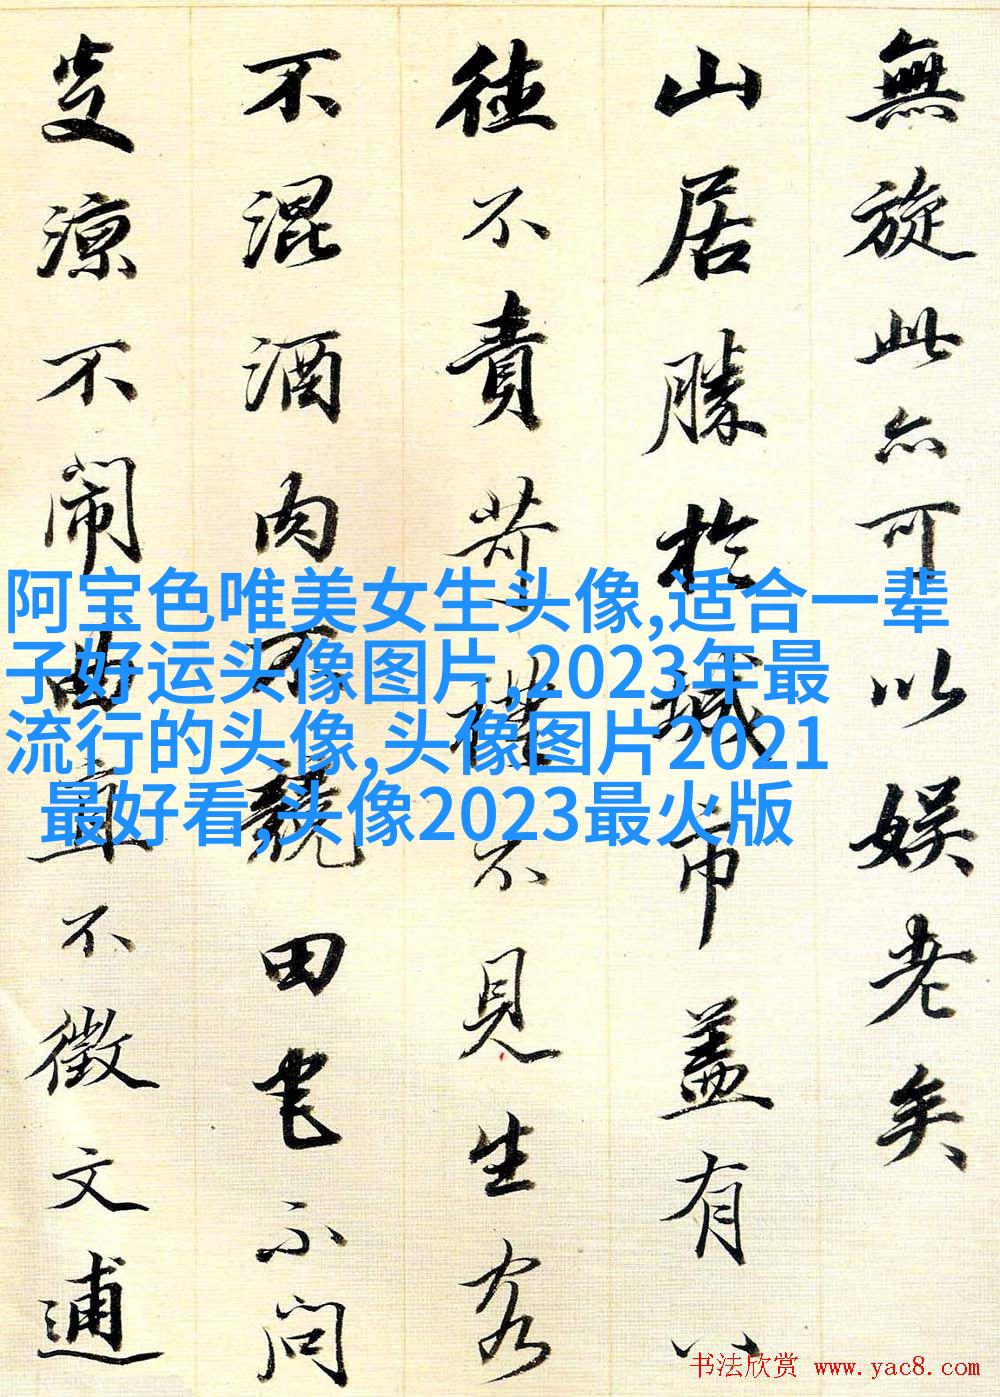 無旋此亦可以娱老矣
山居勝於城市盖有八
德不責苛禮不見生客
不混酒肉不競田宅不問
炎涼不闹曲直不徵文逋
阿宝色唯美女生头像,适合一辈
子好运头像图片,2023年最
流行的头像,头像图片2021
最好看,头像2023最火版
书法欣赏 www.yac8.com